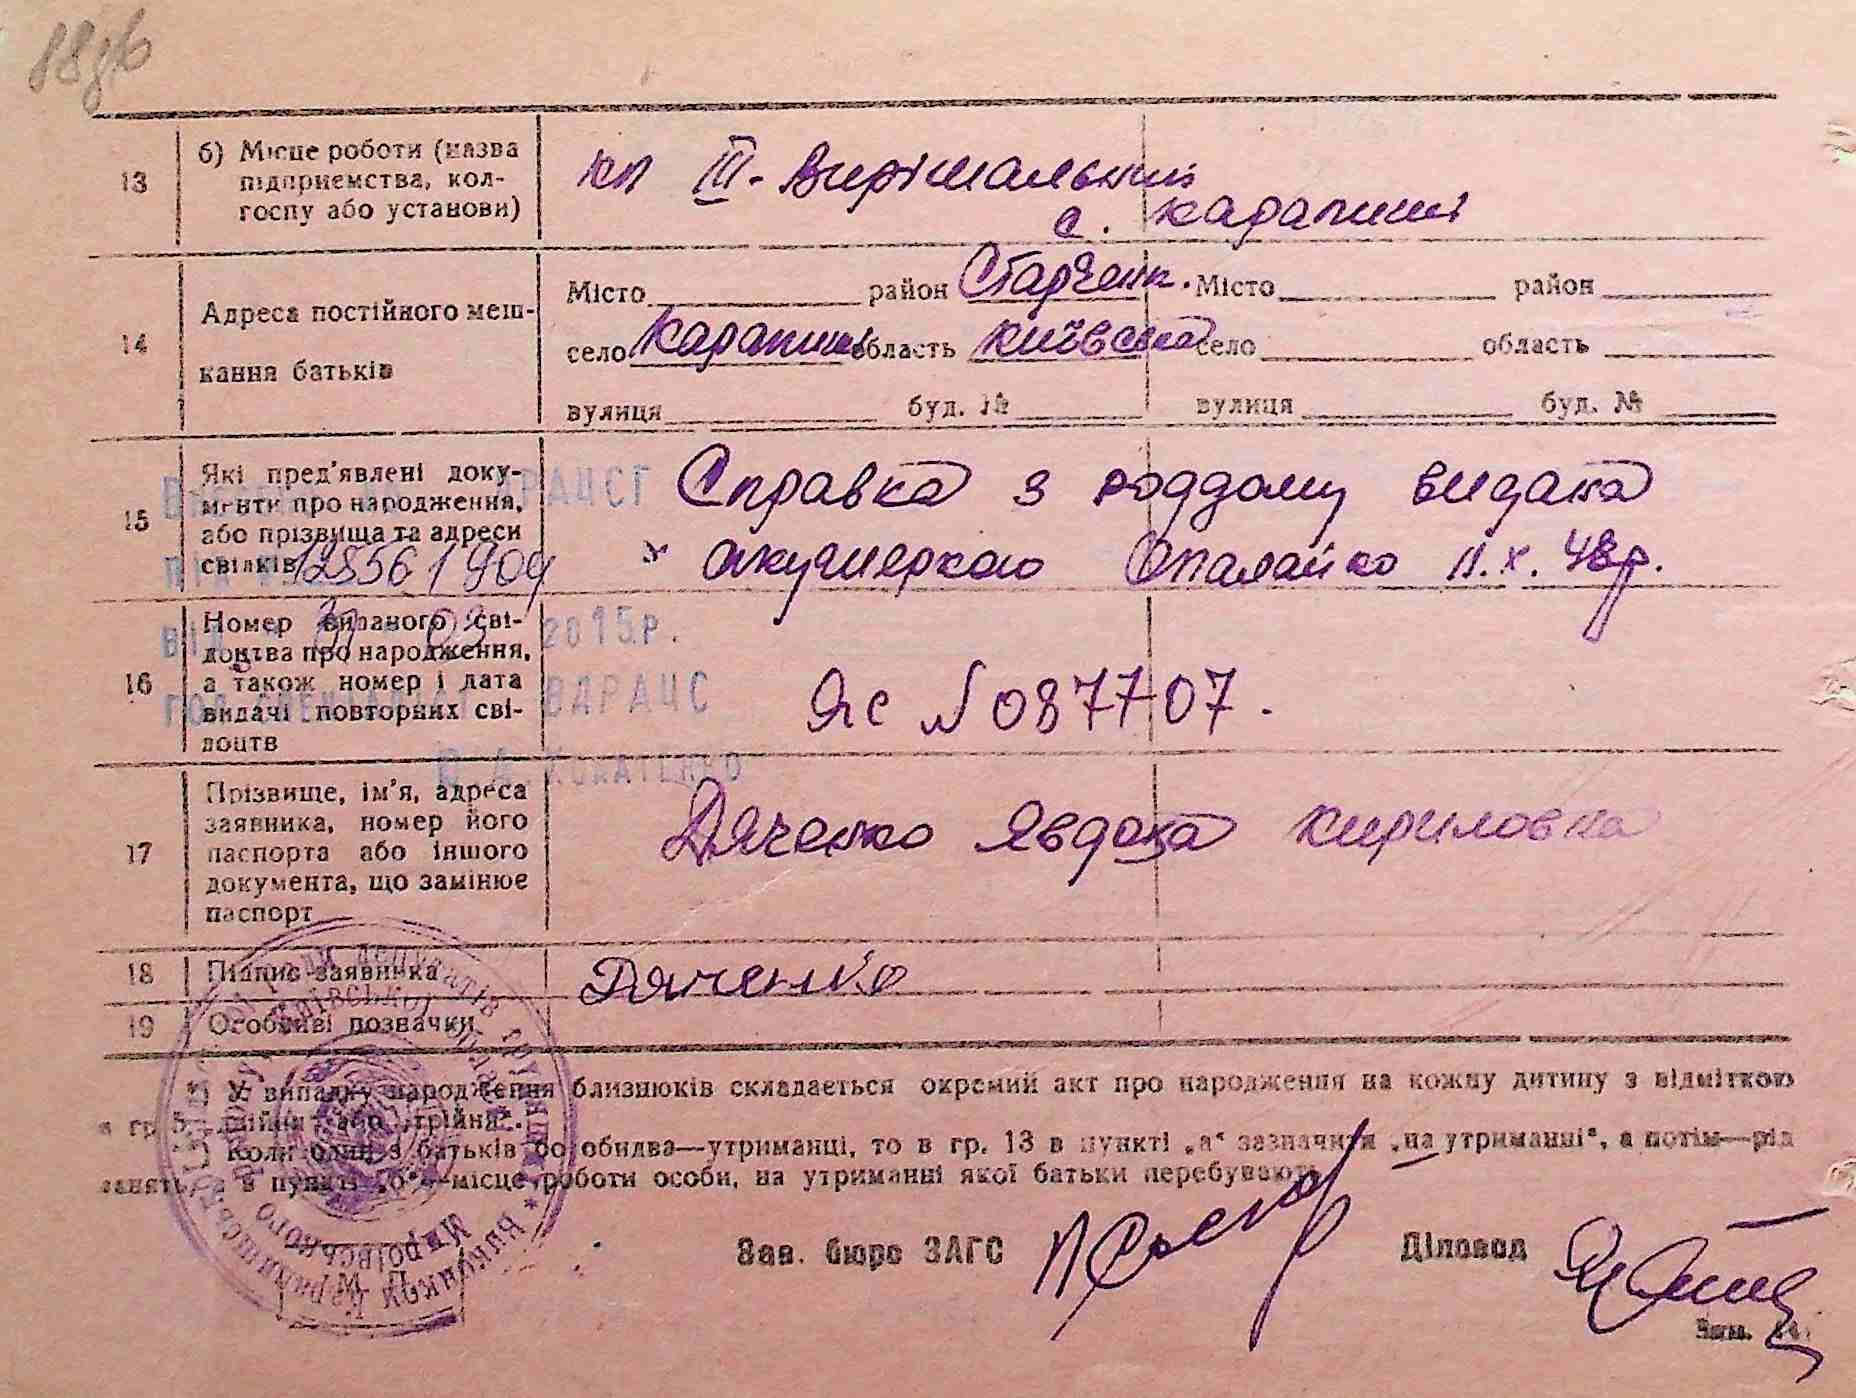 13
б) Місце роботи (назва
підприємства, кол-
госпу або установи)
кл ІІІ-Вирішальний
с. Карапиші
14
Адреса постійного меш-
кання батьків
Місто район Старченк. Місто район
село Карапиші область Київська село область
вулиця буд. № вулиця буд. №
15
Які пред'явлені доку-
менти про народження,
або прізвища та адреси
свідків
Справка з роддому видана
акушеркою Опалайко 11.X.48р.
16
Номер виданого сві-
доцтва про народження,
а також номер і дата
видачі повторних сві-
доцтв
2015р.
ВДРАЦС
Яс N 087707.
17
Прізвище, ім'я, адреса
заявника, номер його
паспорта або іншого
документа, що замінює
паспорт
Дяченко Явдоха Кириловна
18
Підпис заявника
Дяченко
19
Особливі позначки
У випадку народження близнюків складається окремий акт про народження на кожну дитину з відміткою
в гр. 5 „двійня“ або „трійня“.
Коли один з батьків, бо обидва—утриманці, то в гр. 13 в пункті „а“ зазначити „на утриманні“, а потім—рід
занять, а в пункті „б“—місце роботи особи, на утриманні якої батьки перебувають.
Зав. бюро ЗАГС
Діловод
М. П.
Зам.